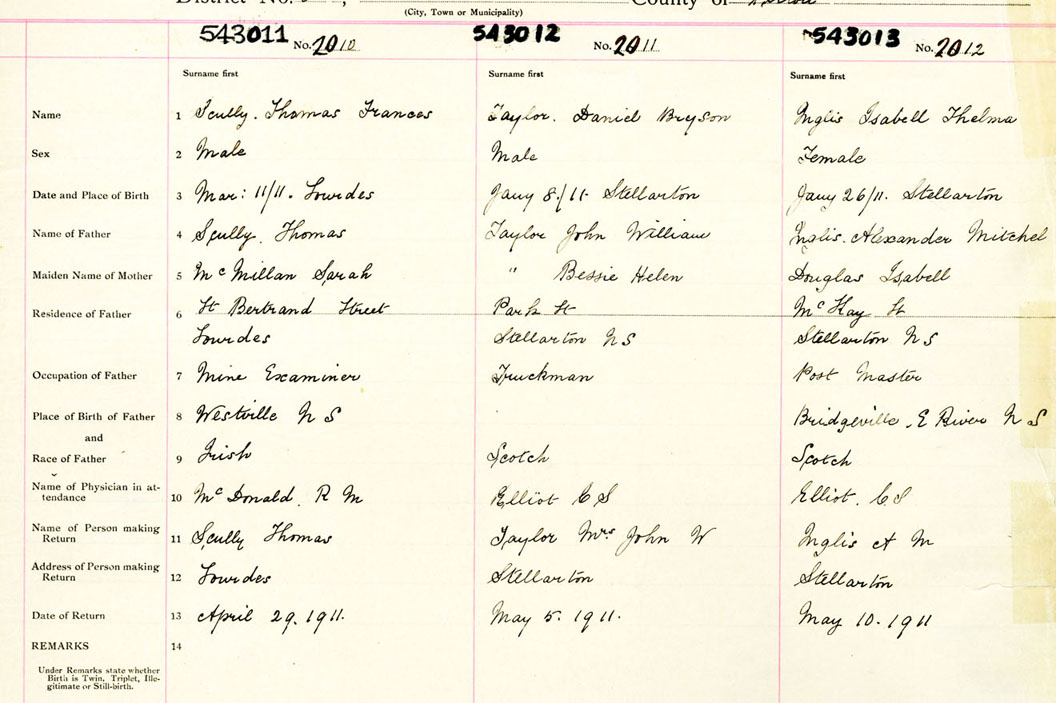 District No.
County of
(City, Town or Municipality)
543011 No. 2010 543012 No. 2011 543013 No. 2012
Surname first Surname first Surname first
Name 1 Scully. Thomas Frances Taylor. Daniel Bryson Inglis Isabell Thelma
Sex 2 Male Male Female
Date and Place of Birth 3 Mar: 11/11. Lourdes Jany 8./11. Stellarton Jany 26/11. Stellarton
Name of Father 4 Scully. Thomas Taylor John William Inglis. Alexander Mitchel
Maiden Name of Mother 5 McMillan Sarah " Bessie Helen Douglas Isabell
Residence of Father 6 St Bertrand Street Park St McKay St
Lourdes Stellarton N S Stellarton N S
Occupation of Father 7 Mine Examiner Truckman Post Master
Place of Birth of Father 8 Westville N S Bridgeville. E River N S
and
Race of Father 9 Irish Scotch Scotch
Name of Physician in at-
tendance 10 McDonald. R M Elliot C S Elliot. C S
Name of Person making
Return 11 Scully Thomas Taylor Mrs John W Inglis A M
Address of Person making
Return 12 Lourdes Stellarton Stellarton
Date of Return 13 April 29. 1911. May 5. 1911. May 10. 1911
REMARKS 14
Under Remarks state whether
Birth is Twin, Triplet, Ille-
gitimate or Still-birth.